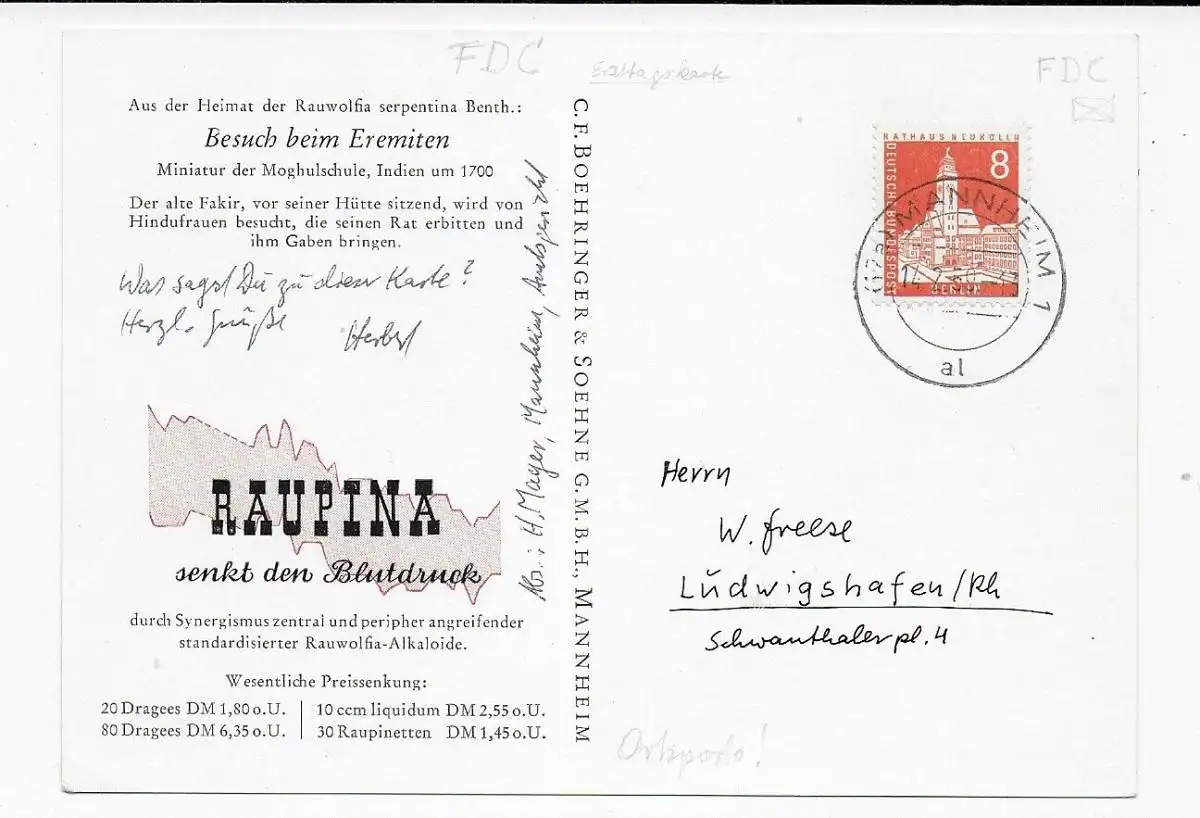 FDC
Ersttagskarte
FDC
Aus der Heimat der Rauwolfia serpentina Benth.:
Besuch beim Eremiten
Miniatur der Moghulschule, Indien um 1700
Der alte Fakir, vor seiner Hütte sitzend, wird von
Hindufrauen besucht, die seinen Rat erbitten und
ihm Gaben bringen.
Was sagst Du zu dieser Karte?
Herzl. Grüße
Herbert
RAUPINA
senkt den Blutdruck
durch Synergismus zentral und peripher angreifender
standardisierter Rauwolfia-Alkaloide.
Wesentliche Preissenkung:
20 Dragees DM 1,80 o.U.
80 Dragees DM 6,35 o.U.
10 ccm liquidum DM 2,55 o.U.
30 Raupinetten DM 1,45 o.U.
Abs.: H. Mayer, Mannheim, Amtsgericht
C. F. BOEHRINGER & SOEHNE G. M. B. H., MANNHEIM
RATHAUS NEUKÖLLN
8
DEUTSCHE BUNDESPOST
BERLIN
MANNHEIM 1
al
Herrn
W. Freese
Ludwigshafen/Rh
Schwanthalerpl. 4
Ortsporto!